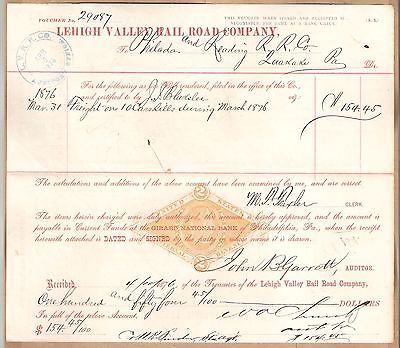 VOUCHER No. 29087
THIS VOUCHER WHEN SIGNED AND RECEIPTED IS
NEGOTIABLE FOR USE AS A BANK VALUE.
LEHIGH VALLEY RAIL ROAD COMPANY,
To Philada and Reading R.R. Co. Dr.
Pa
L.V.R.R. Co.
For the following as rendered, filed in the office of this Co.,
and certified to by J. Blakslee viz:
1876
Mar. 31 Freight on 10 Car during March 1876 $154.45
The calculations and additions of the above account have been examined by me, and are correct.
CLERK.
The items herein charged were duly authorized, the account is hereby approved, and the amount is
payable in Current Funds at the GIRARD NATIONAL BANK of Philadelphia, Pa., when the receipt
hereunto attached is DATED and SIGNED by the party in whose favor it is drawn.
UNITED STATES
2
John B Garrett AUDITOR.
Received of the Treasurer of the Lehigh Valley Rail Road Company,
One hundred and fifty four 45/100 DOLLARS
In full of the above Account.
$ 154 45/100
$154.45